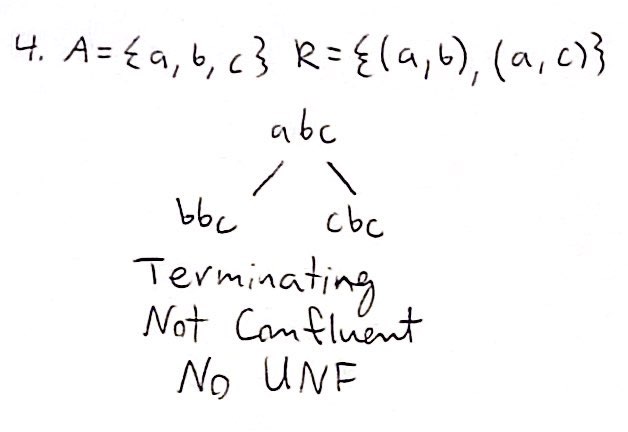 4. A={a, b, c} R={(a,b), (a,c)}
abc
bbc cbc
Terminating
Not Confluent
No UNF